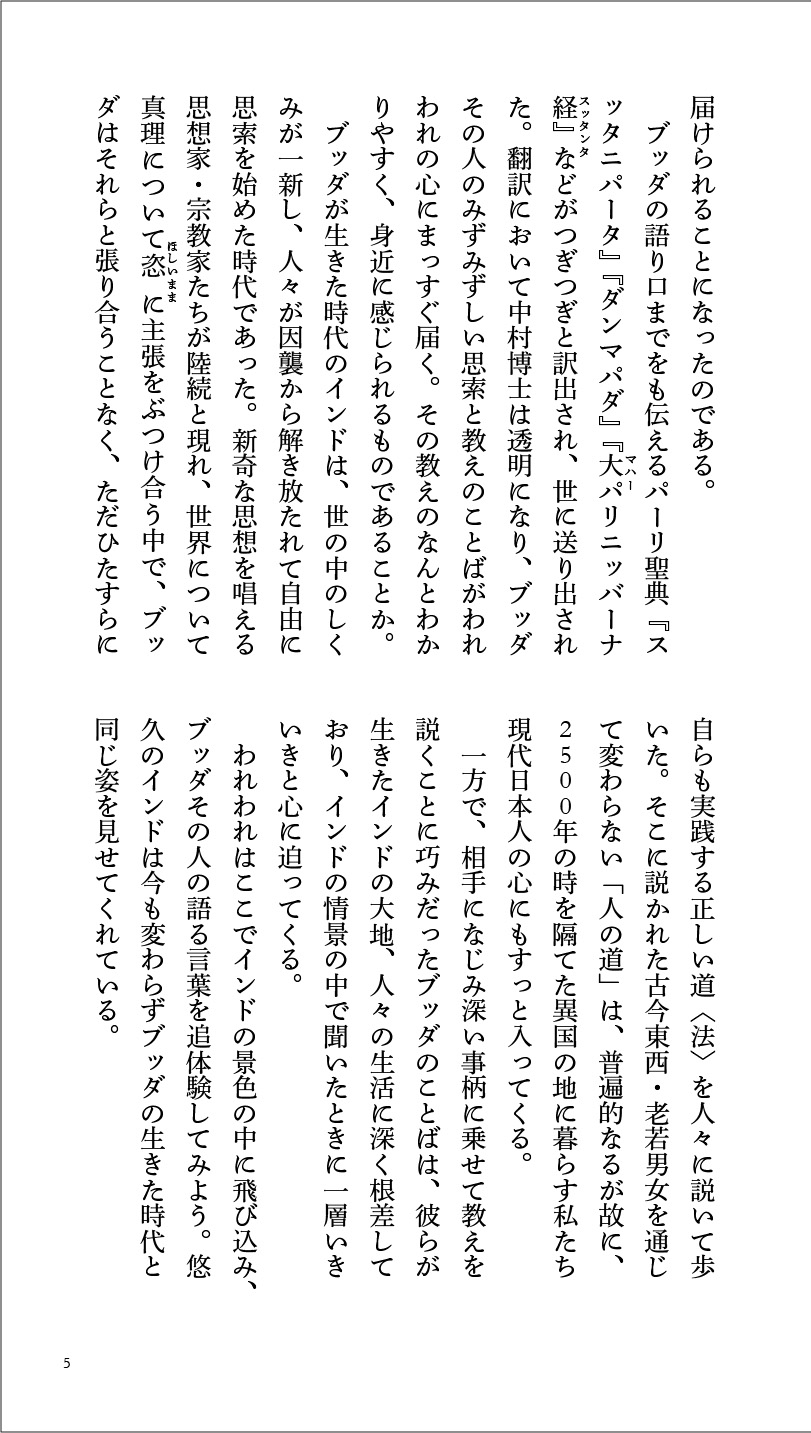 届けられることになったのである。
　ブッダの語り口までをも伝えるパーリ聖典『ス
ッタニパータ』『ダンマパダ』『大パリニッバーナ
マハー
経』などがつぎつぎと訳出され、世に送り出され
スッタンタ
た。翻訳において中村博士は透明になり、ブッダ
その人のみずみずしい思索と教えのことばがわれ
われの心にまっすぐ届く。その教えのなんとわか
りやすく、身近に感じられるものであることか。
　ブッダが生きた時代のインドは、世の中のしく
みが一新し、人々が因襲から解き放たれて自由に
思索を始めた時代であった。新奇な思想を唱える
思想家・宗教家たちが陸続と現れ、世界について
真理について恣に主張をぶつけ合う中で、ブッ
ほしいまま
ダはそれらと張り合うことなく、ただひたすらに
自らも実践する正しい道〈法〉を人々に説いて歩
いた。そこに説かれた古今東西・老若男女を通じ
て変わらない「人の道」は、普遍的なるが故に、
2500年の時を隔てた異国の地に暮らす私たち
現代日本人の心にもすっと入ってくる。
　一方で、相手になじみ深い事柄に乗せて教えを
説くことに巧みだったブッダのことばは、彼らが
生きたインドの大地、人々の生活に深く根差して
おり、インドの情景の中で聞いたときに一層いき
いきと心に迫ってくる。
　われわれはここでインドの景色の中に飛び込み、
ブッダその人の語る言葉を追体験してみよう。悠
久のインドは今も変わらずブッダの生きた時代と
同じ姿を見せてくれている。
5